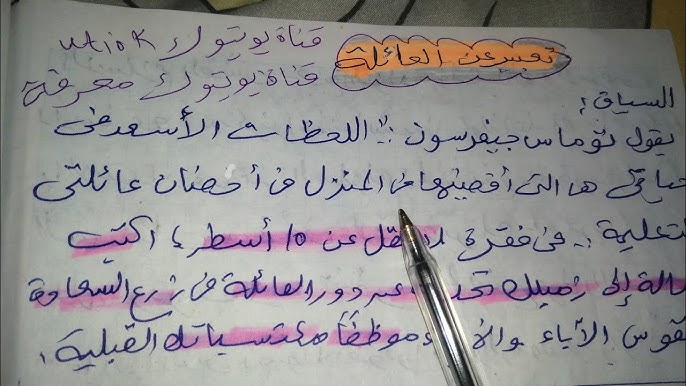 قناة يوتيوب utick
تعبير عن العائلة
قناة يوتيوب معرفة
السياق:
يقول توماس جيفرسون: "اللحظات الأسعد في
حياتي هي التي أقضيتها في المنزل في أحضان عائلتي
التعليمة: في فقرة لا تقل عن 10 أسطر، اكتب
رسالة إلى زميلك عن دور العائلة في زرع السعادة
نفوس الآباء موظفا مكتسباتك القبلية.